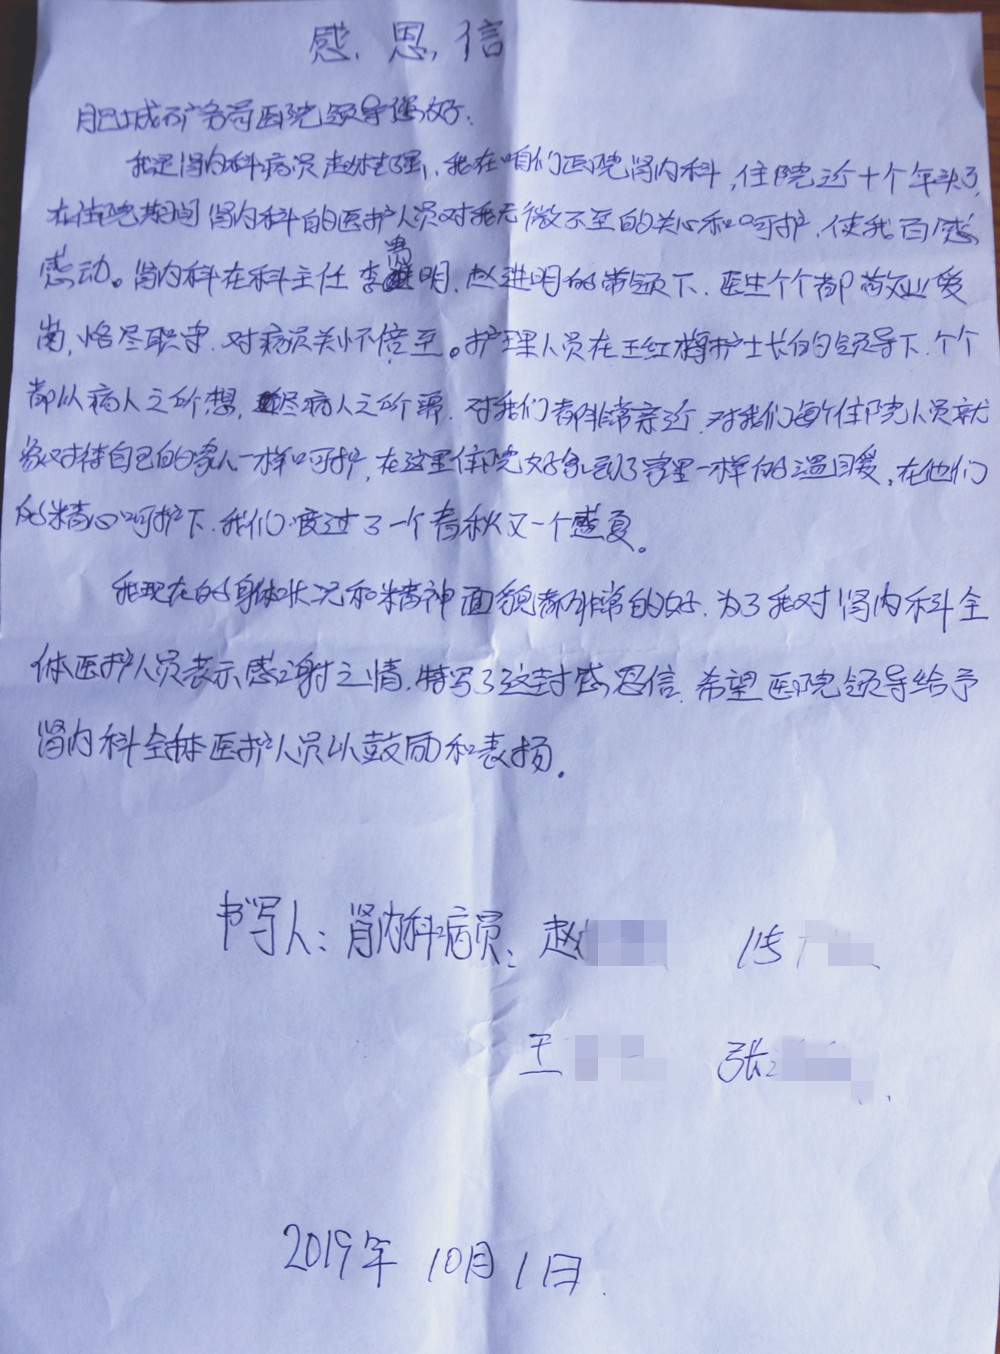 感恩信
肥城矿务局医院领导您好：
我是肾内科病员赵 强，我在咱们医院肾内科，住院近十个年头了，
在住院期间肾内科的医护人员对我无微不至的关心和呵护，使我百感
感动。肾内科在科主任李 明，赵进明的带领下，医生个个都敬业爱
岗，恪尽职守，对病员关怀倍至。护理人员在王红梅护士长的领导下，个个
都从病人之所想，尽病人之所需，对我们都非常亲近，对我们每个住院人员就
象对待自己的家人一样呵护，在这里住院好象到了家里一样的温暖，在他们
的精心呵护下，我们度过了一个春秋又一个盛夏。
我现在的身体状况和精神面貌都非常的好，为了我对肾内科全
体医护人员表示感谢之情，特写了这封感恩信，希望医院领导给予
肾内科全体医护人员以鼓励和表扬。
书写人：肾内科病员：赵
王 张
2019年10月1日